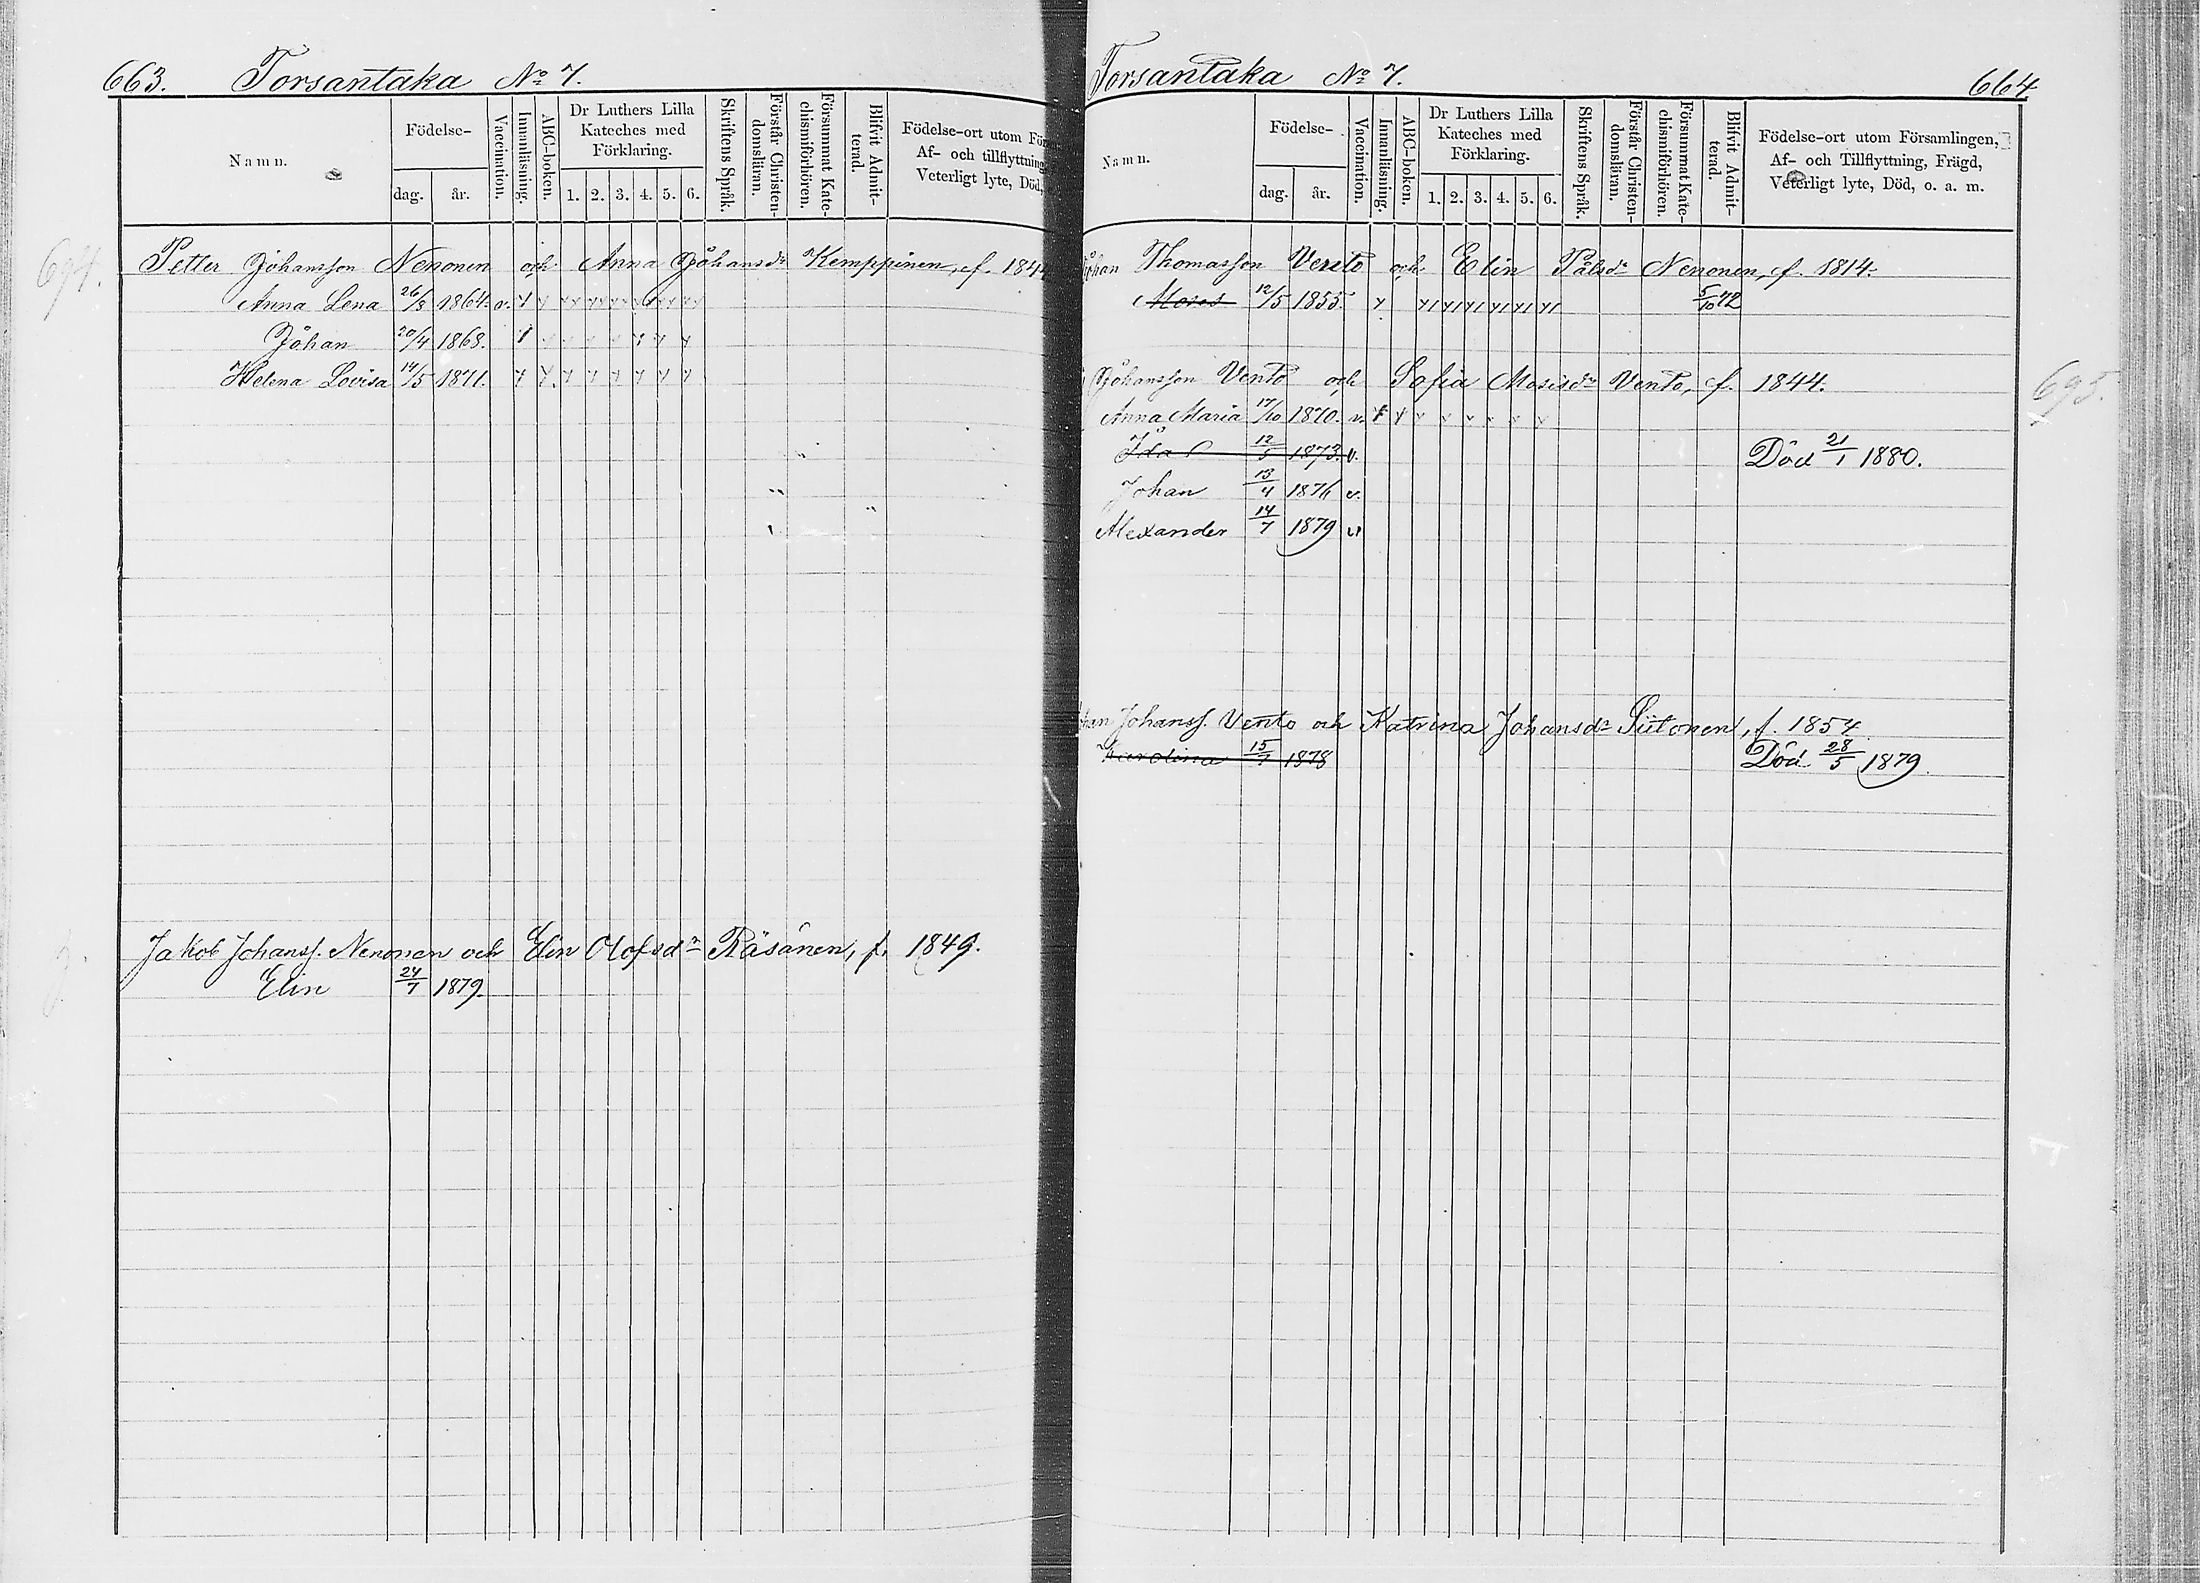 663. Torsantaka No 7.
Namn.
Födelse-
dag. år.
Vaccination.
Innanläsning.
ABC-boken.
Dr Luthers Lilla
Kateches med
Förklaring.
1. 2. 3. 4. 5. 6.
Skriftens Språk.
Förstår Christen-
domsläran.
Försummat Kate-
chismiförhören.
Blifvit Admit-
terad.
Födelse-ort utom För
Af- och tillflyttning
Veterligt lyte, Död,
694.
Petter Johansson Nenonen och Anna Johansdr Kemppinen, f. 184
Anna Lena 26/8 1864. v.
Johan 20/4 1868.
Helena Lovisa 14/5 1871.
Jakob Johanss. Nenonen och Elin Olofsdr Räsänen, f. 1849.
Elin 24/7 1879.
Torsantaka No 7. 664
Namn.
Födelse-
dag. år.
Vaccination.
Innanläsning.
ABC-boken.
Dr Luthers Lilla
Kateches med
Förklaring.
1. 2. 3. 4. 5. 6.
Skriftens Språk.
Förstår Christen-
domsläran.
Försummat Kate-
chismiförhören.
Blifvit Admit-
terad.
Födelse-ort utom Församlingen,
Af- och Tillflyttning, Frägd,
Veterligt lyte, Död, o. a. m.
Johan Thomasson Vento och Elin Pålsdr Nenonen, f. 1814.
Moses 12/5 1855. 5/10 72
Johansson Vento och Sofia Mosisdr Vento, f. 1844.
695.
Anna Maria 17/10 1870. v.
Ida 12/5 1873. v. Död 21/1 1880.
Johan 13/4 1876 v.
Alexander 14/7 1879 v
han Johanss. Vento och Katrina Johansdr Siitonen, f. 1854
Karolina 15/7 1878 Död 28/5 1879.